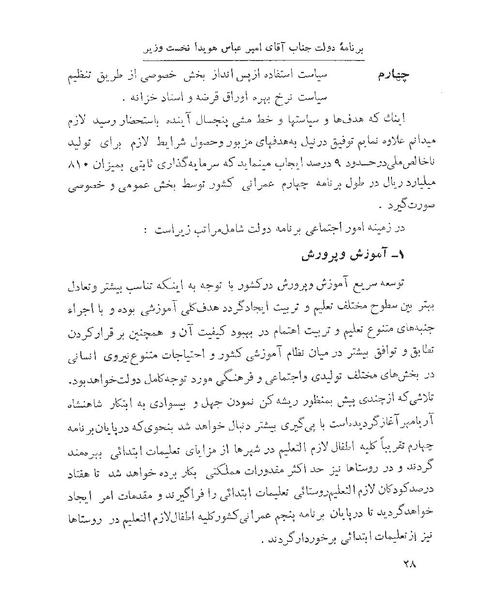 برنامهٔ دولت جناب آقای امیر عباس هویدا نخست وزیر
چهارم سیاست استفاده از پس انداز بخش خصوصی از طریق تنظیم
سیاست نرخ بهره اوراق قرضه و اسناد خزانه .
اینك که هدف‌ها و سیاستها و خط مشی پنجسال آینده باستحضار رسید لازم
میدانم علاوه نمایم توفیق در نیل به هدفهای مزبور و حصول شرایط لازم برای تولید
ناخالص ملی در حدود ۹ درصد ایجاب مینماید که سرمایه‌گذاری ثابتی بمیزان ۸۱۰
میلیارد ریال در طول برنامه چهارم عمرانی کشور توسط بخش عمومی و خصوصی
صورت گیرد .
در زمینه امور اجتماعی برنامه دولت شامل مراتب زیر است :
۱- آموزش و پرورش
توسعه سریع آموزش و پرورش در کشور با توجه به اینکه تناسب بیشتر و تعادل
بهتر بین سطوح مختلف تعلیم و تربیت ایجاد گردد هدف کلی آموزشی بوده و با اجراء
جنبه‌های متنوع تعلیم و تربیت اهتمام در بهبود کیفیت آن و همچنین بر قرار کردن
تطابق و توافق بیشتر در میان نظام آموزشی کشور و احتیاجات متنوع نیروی انسانی
در بخش‌های مختلف تولیدی و اجتماعی و فرهنگی مورد توجه کامل دولت خواهد بود.
تلاشی که از چندی پیش بمنظور ریشه کن نمودن جهل و بیسوادی به ابتکار شاهنشاه
آریامهر آغاز گردیده‌است با پی‌گیری بیشتر دنبال خواهد شد بنحوی که در پایان برنامه
چهارم تقریباً کلیه اطفال لازم التعلیم در شهرها از مزایای تعلیمات ابتدائی بهره‌مند
گردند و در روستاها نیز حد اکثر مقدورات مملکتی بکار برده خواهد شد تا هفتاد
درصد کودکان لازم التعلیم روستائی تعلیمات ابتدائی را فراگیرند و مقدمات امر ایجاد
خواهد گردید تا در پایان برنامه پنجم عمرانی کشور کلیه اطفال لازم التعلیم در روستاها
نیز از تعلیمات ابتدائی برخوردار گردند .
۲۸